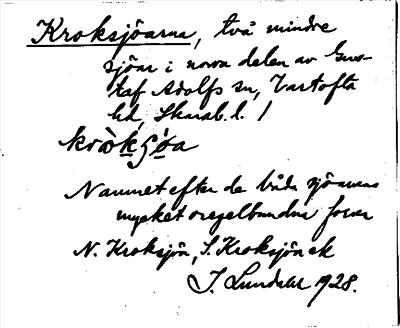 Kroksjöarna, två mindre
sjöar i norra delen av Gus-
taf Adolfs sn, Vartofta
hd, Skarab. l. /
Namnet efter de båda sjöarnas
mycket oregelbundna form
N. Kroksjön, S. Kroksjön ek
J. Lundahl 1928.